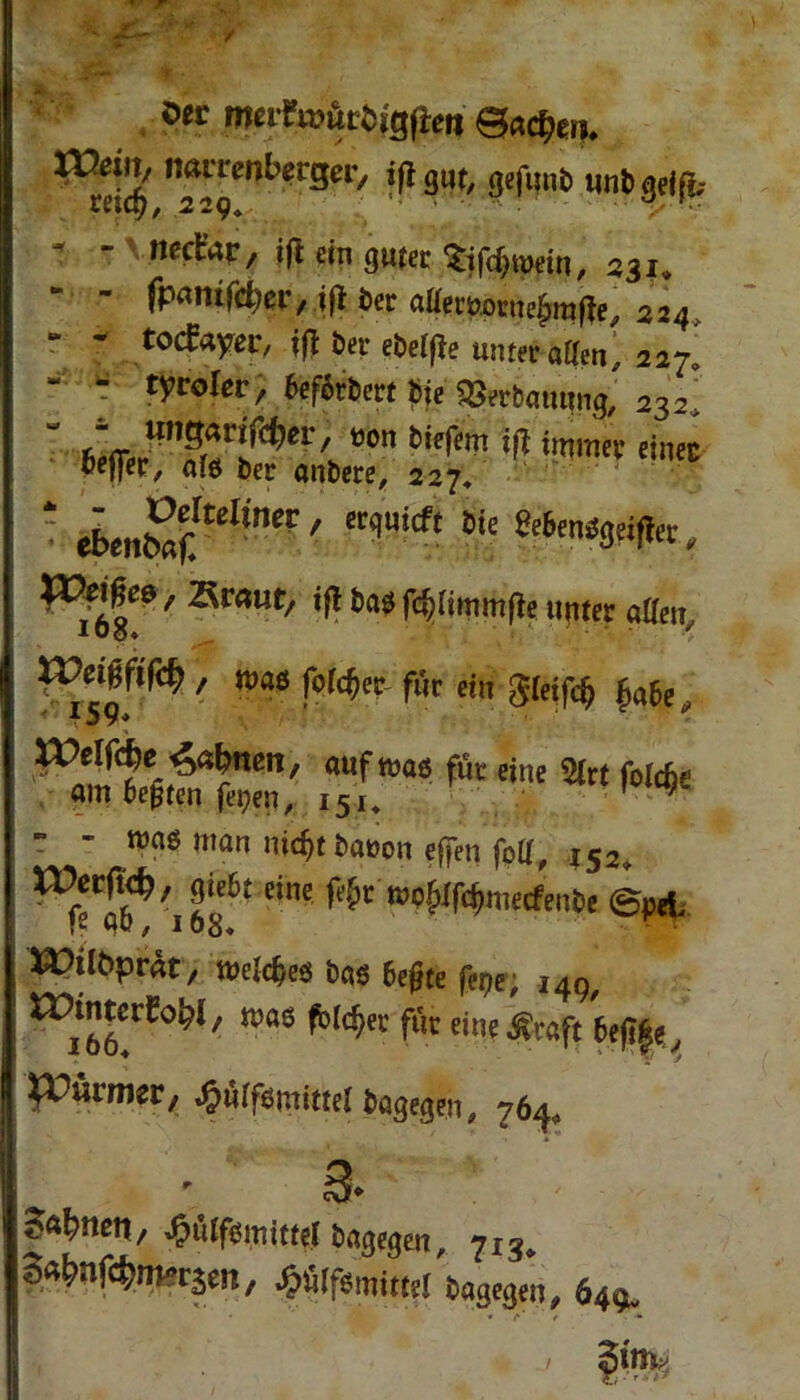 der merkwürdigsten Sachen.
Wein, narrenberger, ist gut, gesund und geist-
reich, 229.
- - neckar, ist ein guter Tischwein, 231.
- - spanischer, ist der allervornehmste, 224.
- - tockayer, ist der edelste unter allen, 227.
- - tyroler, befördert die Verdauung, 232.
- - ungarischer, von diesem ist immer einer
besser, als der andere, 227.
- - Velteliner, erquickt die Lebensgeister,
ebendas.
Weißes, Kraut, ist das schlimmste unter allen,
168.
Weißfisch, was solcher für ein Fleisch habe,
159.
Welsche Hahnen, auf was für eine Art solche
am beßten seyen, 151.
- - was man nicht davon essen soll, 152.
Wersich, giebt eine sehr wohlschmeckende Spei-
se ab, 168.
Wildprät, welches das beßte seye, 149,
Winterkohl, was solcher für eine Kraft besitze,
166.
Würmer, Hülfsmittel dagegen, 764.
Z.
Zahnen, Hülfsmittel dagegen, 713.
Zahnschmerzen, Hülfsmittel dagegen, 649.
Zim-